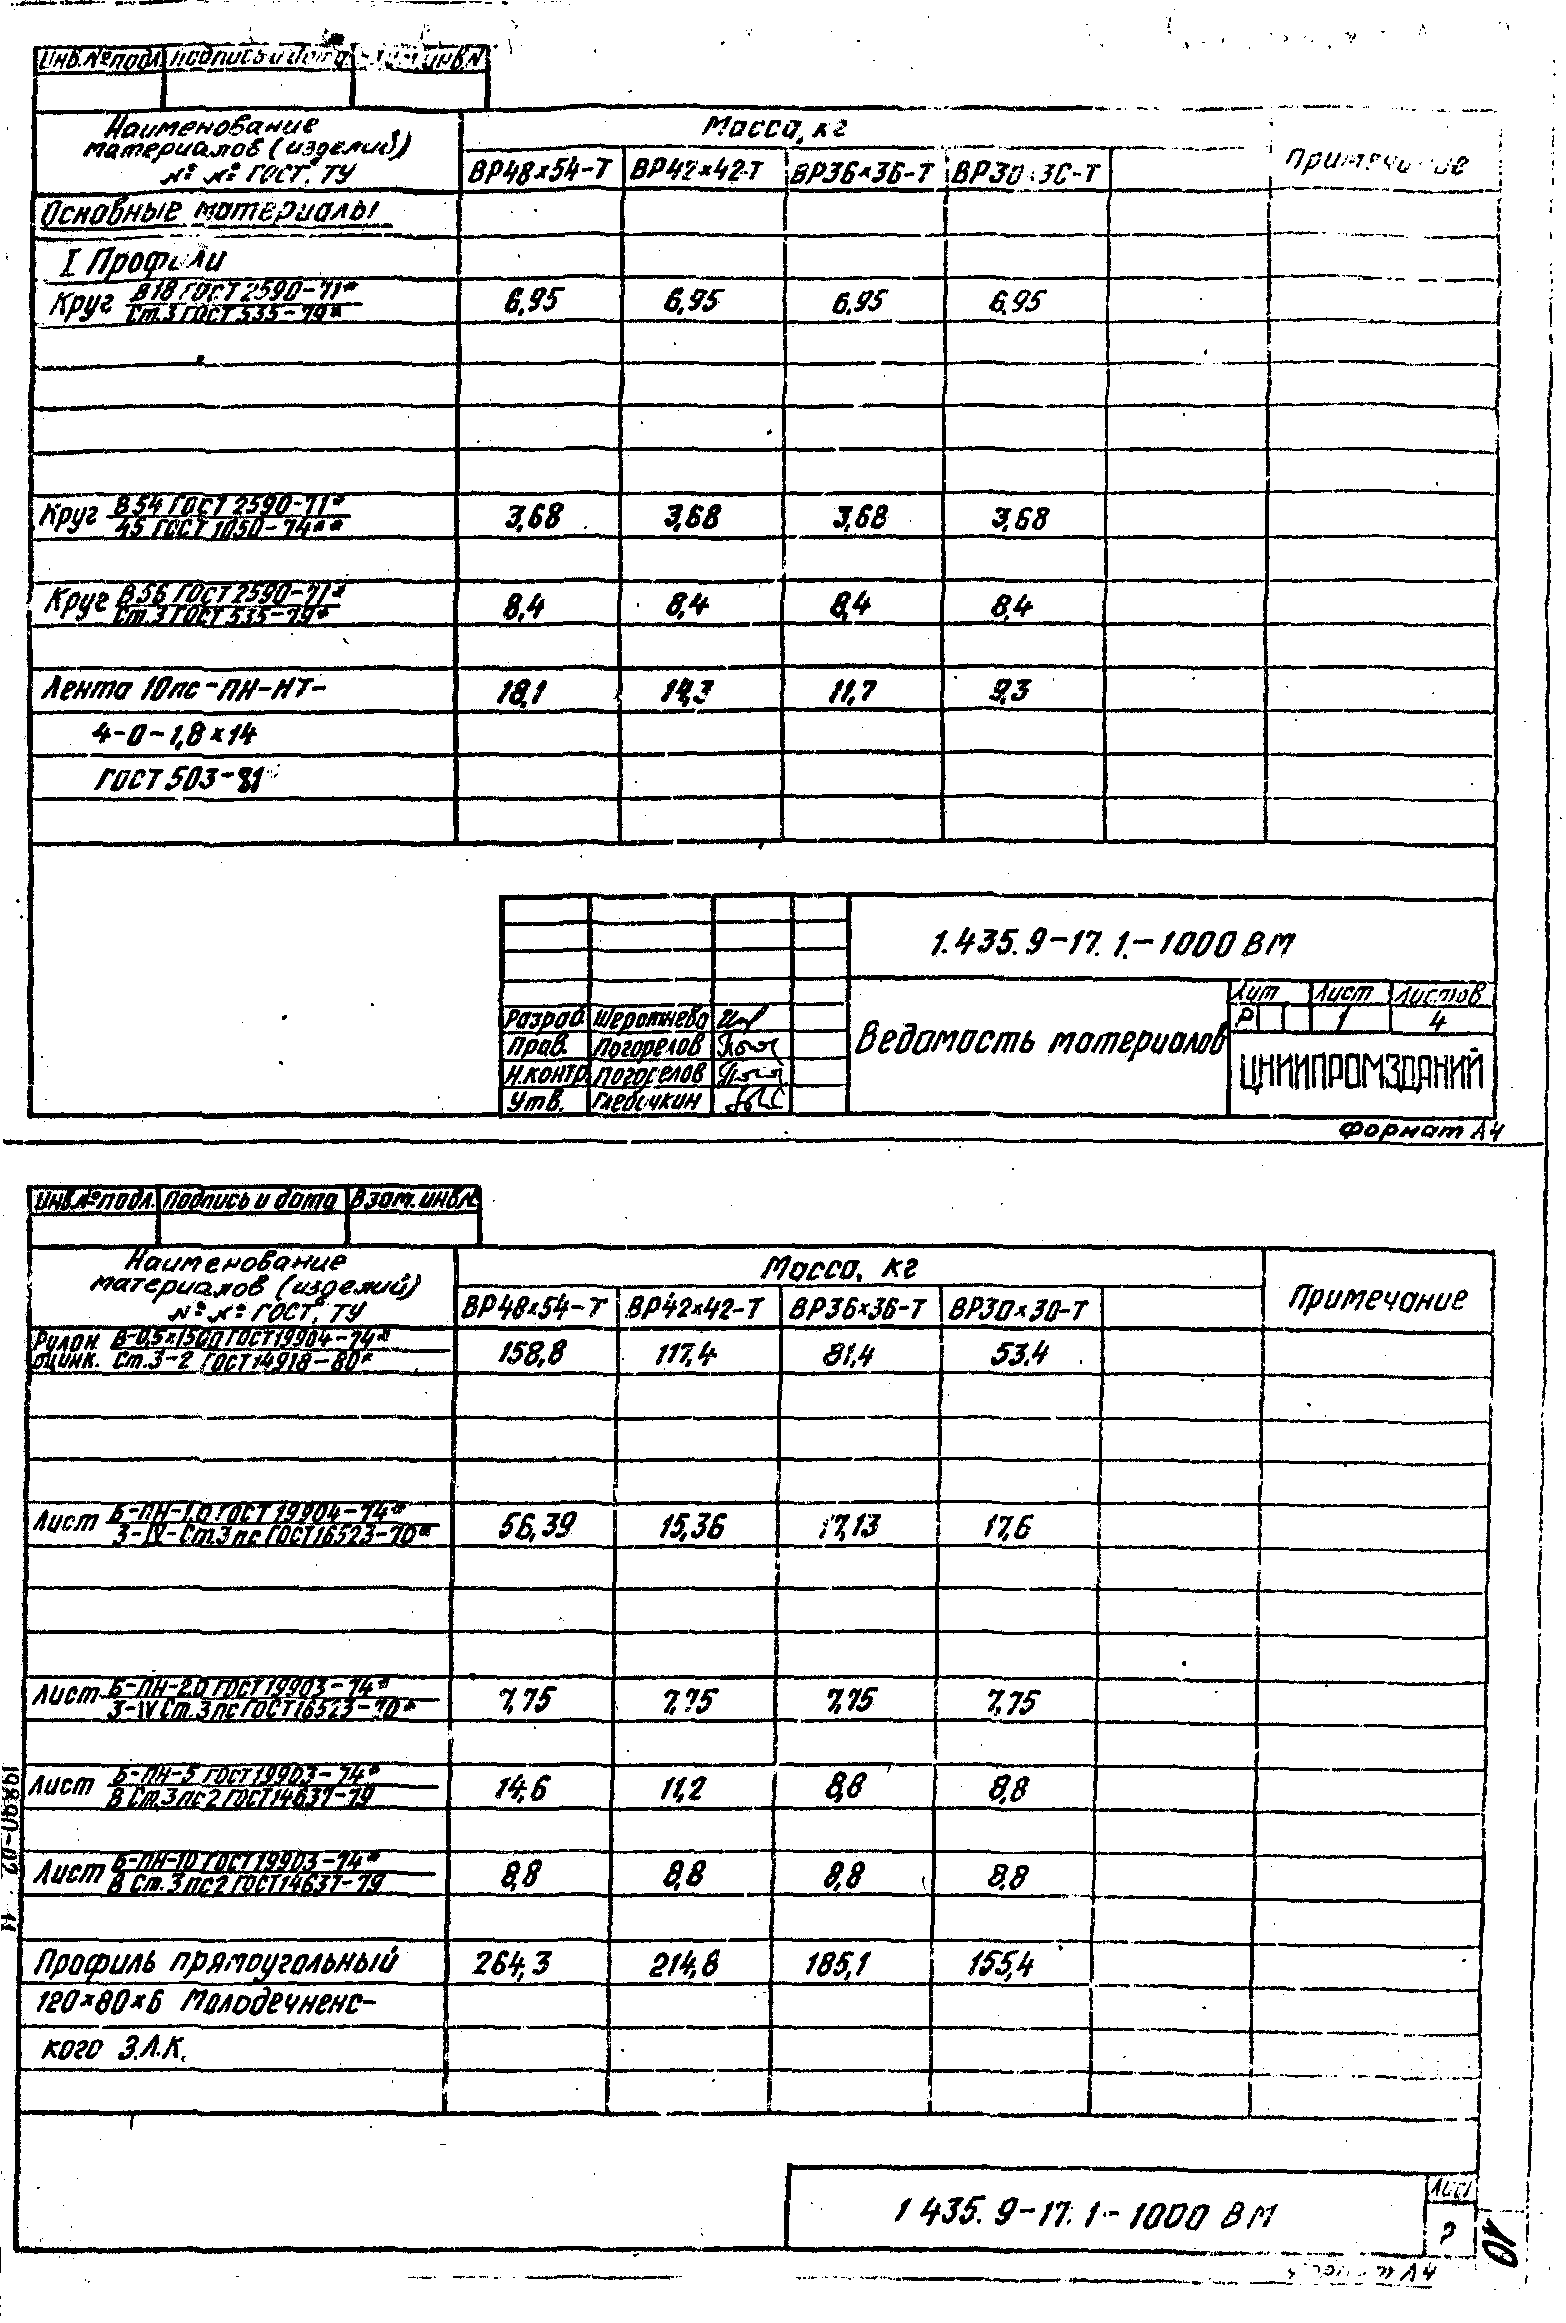 Инв.№подл. Подпись и дата инв.№
Наименование
материалов (изделий)
№ № ГОСТ, ТУ
Масса, кг
Примечание
ВР48×54-Т ВР42×42-Т ВР36×36-Т ВР30×30-Т
Основные материалы
I Профили
Круг В18 ГОСТ 2590-71*
Ст.3 ГОСТ 535-79*
6,95 6,95 6,95 6,95
Круг В54 ГОСТ 2590-71*
45 ГОСТ 1050-74**
3,68 3,68 3,68 3,68
Круг В56 ГОСТ 2590-71*
Ст.3 ГОСТ 535-79*
8,4 8,4 8,4 8,4
Лента 10пс-ПН-НТ- 18,1 14,3 11,7 9,3
4-0-1,8×14
ГОСТ 503-81
1.435.9-17.1.-1000 ВМ
Разраб. Шеромнева
Пров. Погорелов
Н.контр. Погорелов
Утв. Глебочкин
Ведомость материалов
Лит. Лист Листов
Р 1 4
ЦНИИПРОМЗДАНИЙ
Формат А4
Инв.№подл. Подпись и дата Взам.инв.№
Наименование
материалов (изделий)
№ № ГОСТ, ТУ
Масса, кг
Примечание
ВР48×54-Т ВР42×42-Т ВР36×36-Т ВР30×30-Т
Рулон В-0,5×1500 ГОСТ 19904-74*
оцинк. Ст.3-2 ГОСТ 14918-80*
158,8 117,4 81,4 53,4
Лист Б-ПН-1,0 ГОСТ 19904-74*
3-IV-Ст.3пс ГОСТ 16523-70*
56,39 15,36 17,13 17,6
Лист Б-ПН-2,0 ГОСТ 19903-74*
3-IV Ст.3пс ГОСТ 16523-70*
7,75 7,75 7,75 7,75
Лист Б-ПН-5 ГОСТ 19903-74*
В Ст.3пс2 ГОСТ 14637-79
14,6 11,2 8,8 8,8
Лист Б-ПН-10 ГОСТ 19903-74*
В Ст.3пс2 ГОСТ 14637-79
8,8 8,8 8,8 8,8
Профиль прямоугольный 264,3 214,8 185,1 155,4
120×80×6 Молодечненс-
кого З.Л.К.
19890-02 11
1 435.9-17.1-1000 ВМ
Лист
2
10
Формат А4